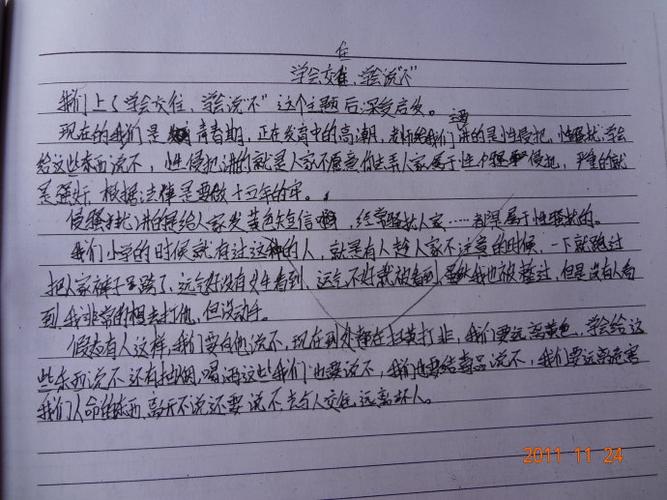 往
学会交往、学会说"不"
我们上了"学会交往、学会说"不"这个主题后深受启发。
现在的我们是青春期,正在发育中的高潮,老师给我们主要讲的是性侵犯,性骚扰,学会
给这些东西说不,性侵犯讲的就是人家不愿意你去弄人家属于性侵犯,严重的就
是强奸,根据法律是要做十五年的牢。
侵骚扰讲的是给人家发黄色短信啊,经常骚扰人家……都是属于性骚扰的。
我们小学的时候就有过这种的人,就是有人趁人家不注意的时候,一下就跑过
把人家裤子了,运气好没有女生看到,运气不好就被看到,虽然我也被过,但是没有人看
到,我非常的想去打他,但没动手。
假如有人这样,我们要向他说不,现在到处都在扫黄打非,我们要远离黄色,学会给这
些东西说不还有抽烟,喝酒这些我们也要说不,我们也要给毒品说不,我们要远离危害
我们人命的东西,不说还要说不去与人交往,远离坏人。
2011 11 24